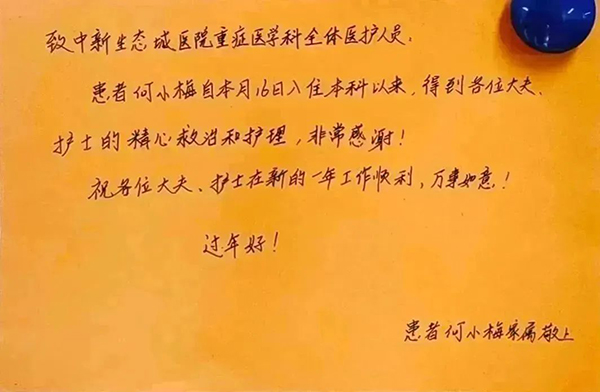 致中新生态城医院重症医学科全体医护人员：
患者何小梅自本月16日入住本科以来，得到各位大夫、
护士的精心救治和护理，非常感谢！
祝各位大夫、护士在新的一年工作顺利，万事如意！
过年好！
患者何小梅家属敬上